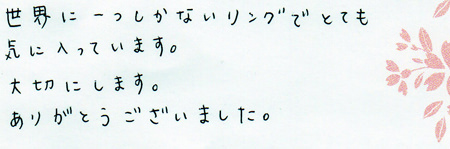 世界に一つしかないリングでとても
気に入っています。
大切にします。
ありがとうございました。